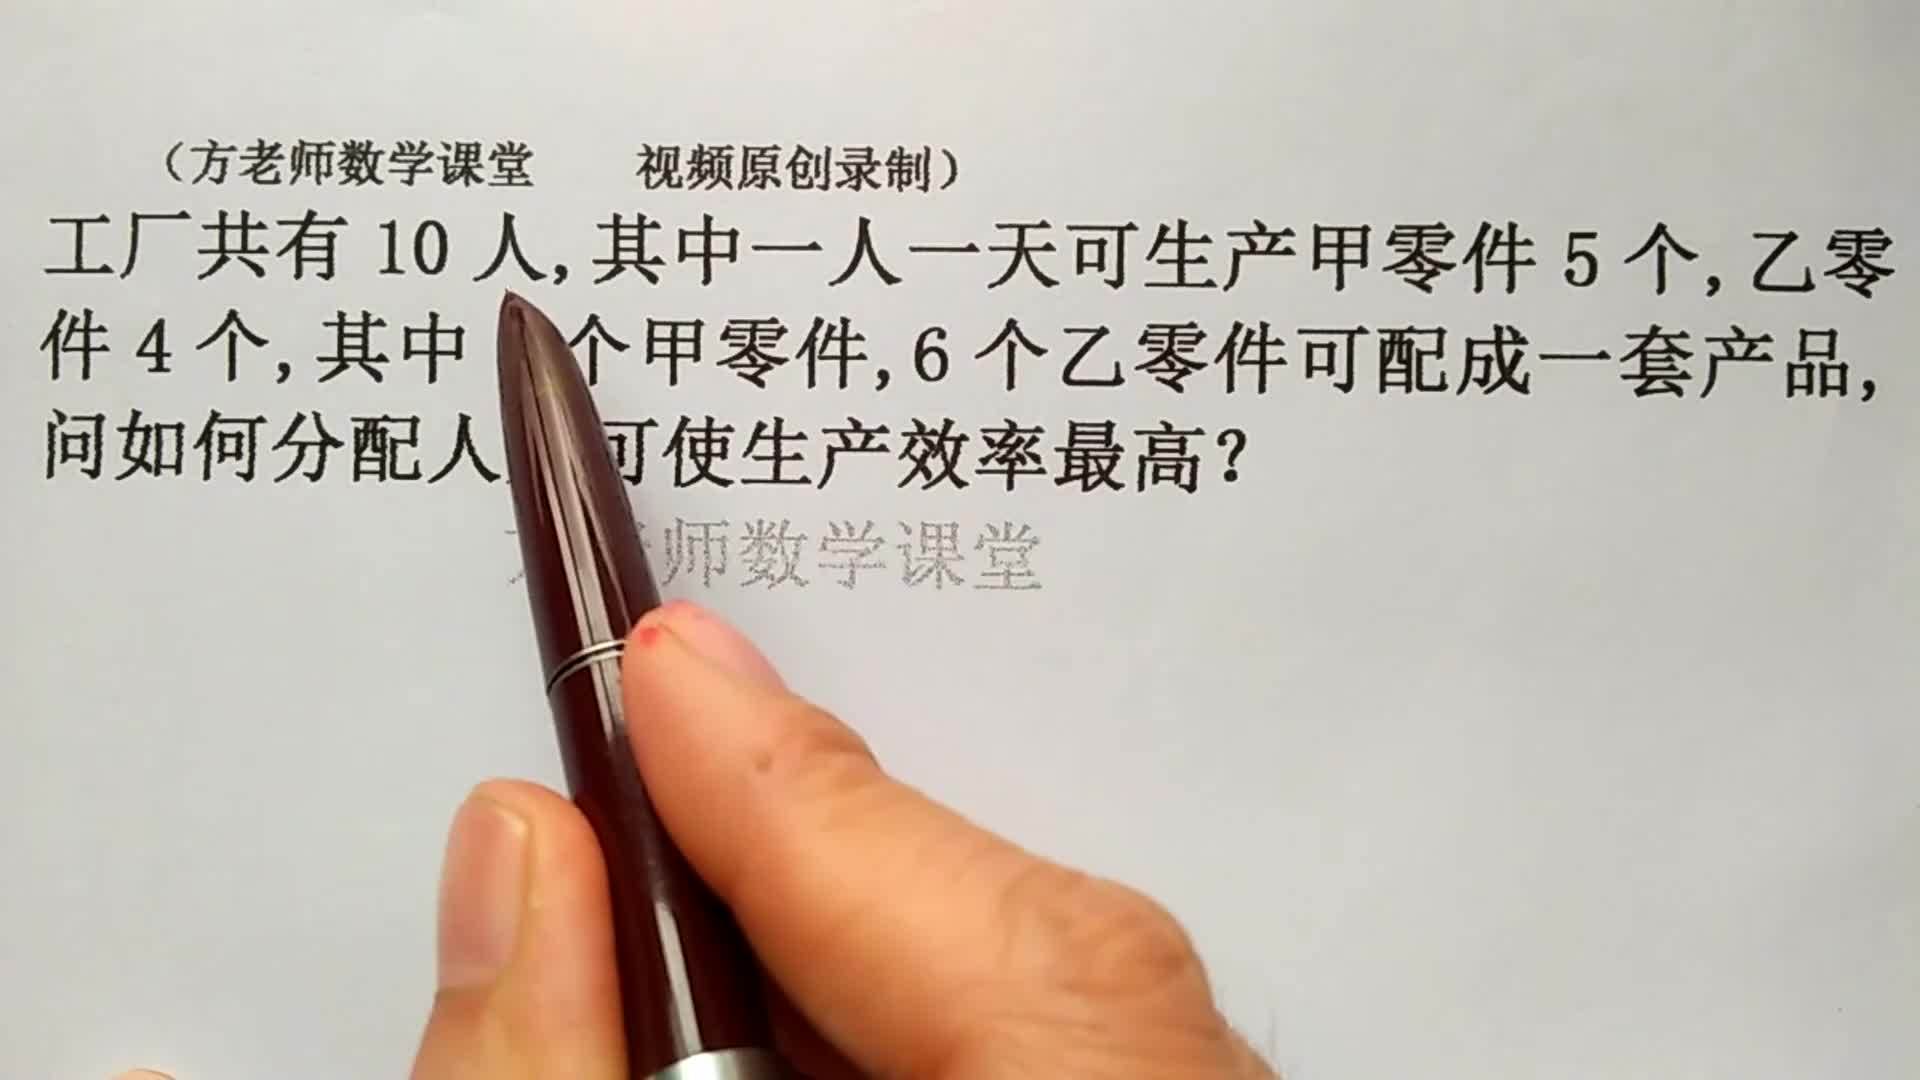 （方老师数学课�　视频原创录制）
工厂共有 10 人,其中一人一天可生产甲零件 5 个,乙零
件 4 个,其中 个甲零件,6 个乙零件可配成一套产品,
问如何分配人 可使生产效率最高?
师数学课堂